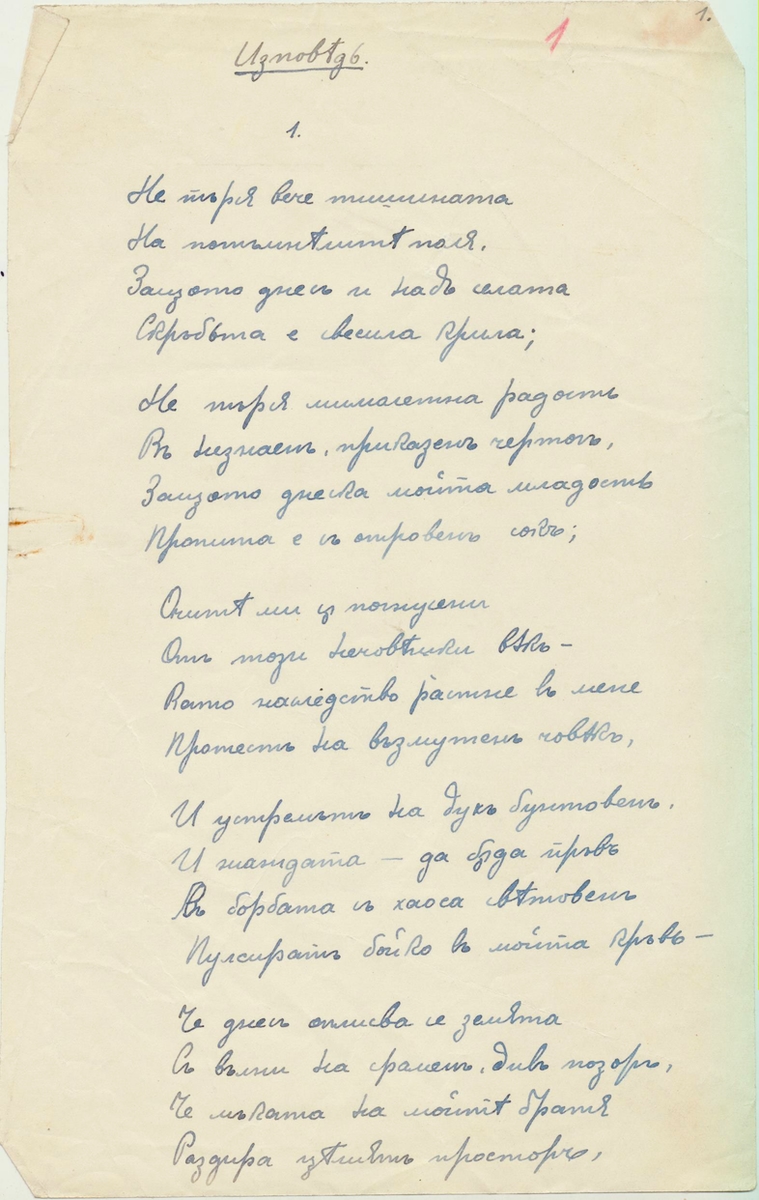 1.
1
Изповѣдь.
1.
Не търся вече тишината
На потъмнѣлитѣ поля,
Защото днесь и надъ селата
Скръбьта е свесила крила;
Не търся мимолетна радость
Въ незнаенъ, приказенъ чертогъ,
Защото днеска мойта младость
Пропита е съ отровенъ сокъ;
Очитѣ ми сѫ погнусени
Отъ този нечовѣшки вѣкъ —
Като наследство растне въ мене
Протестъ на възмутенъ човѣкъ,
И устремътъ на духъ бунтовенъ,
И жаждата — да бѫда пръвъ
Въ борбата съ хаоса свѣтовенъ
Пулсиратъ бойко въ мойта кръвь —
Че днесь оплисва се земята
Съ вълни на сраменъ, дивъ позоръ,
Че мъката на мойтѣ братя
Раздира цѣлиятъ просторъ,